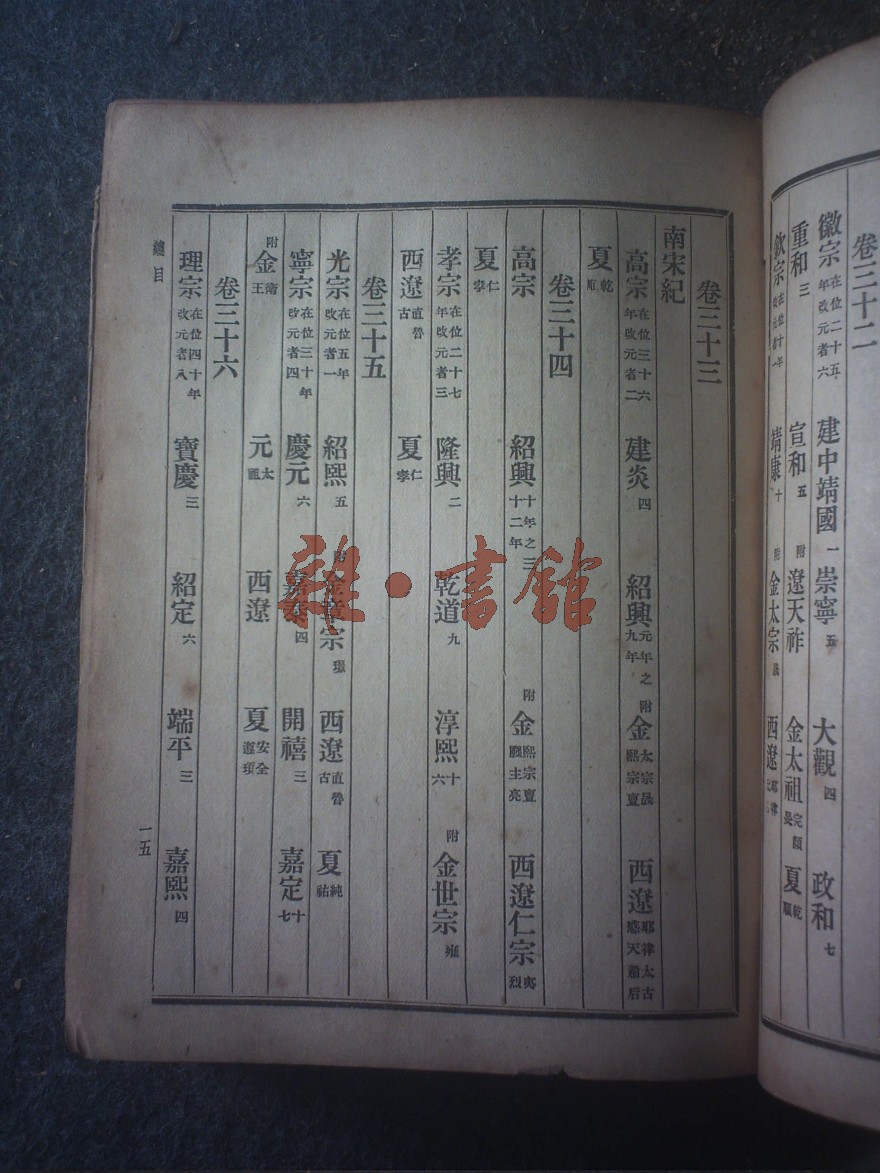 卷三十二
徽宗 在位二十五年改元者六 建中靖國 一 崇寧 五 大觀 四 政和 七
重和 三 宣和 五 附 遼天祚 金太祖 完顏旻 夏 乾順
欽宗 在位一年改元者一 靖康 附 金太宗 晟 西遼 耶律
卷三十三
南宋紀
高宗 在位三十六年改元者二 建炎 四 紹興 元年之九年 附 金 太宗晟熙宗亶 西遼 耶律大古感天蕭后
夏 乾順
卷三十四
高宗 紹興 十年之三十二年 附 金 熙宗亶廢主亮 西遼仁宗 夷烈
夏 仁孝
孝宗 在位二十七年改元者三 隆興 二 乾道 九 淳熙 十六 附 金世宗 雍
西遼 直魯古 夏 仁孝
卷三十五
光宗 在位五年改元者一 紹熙 五 附 金章宗 璟 西遼 直魯古 夏 純祐
寧宗 在位三十年改元者四 慶元 六 嘉泰 四 開禧 三 嘉定 十七
附 金 衛王 元 太祖 西遼 夏 安全遵頊
卷三十六
理宗 在位四十年改元者八 寶慶 三 紹定 六 端平 三 嘉熙 四
總目
一五
雜·書館